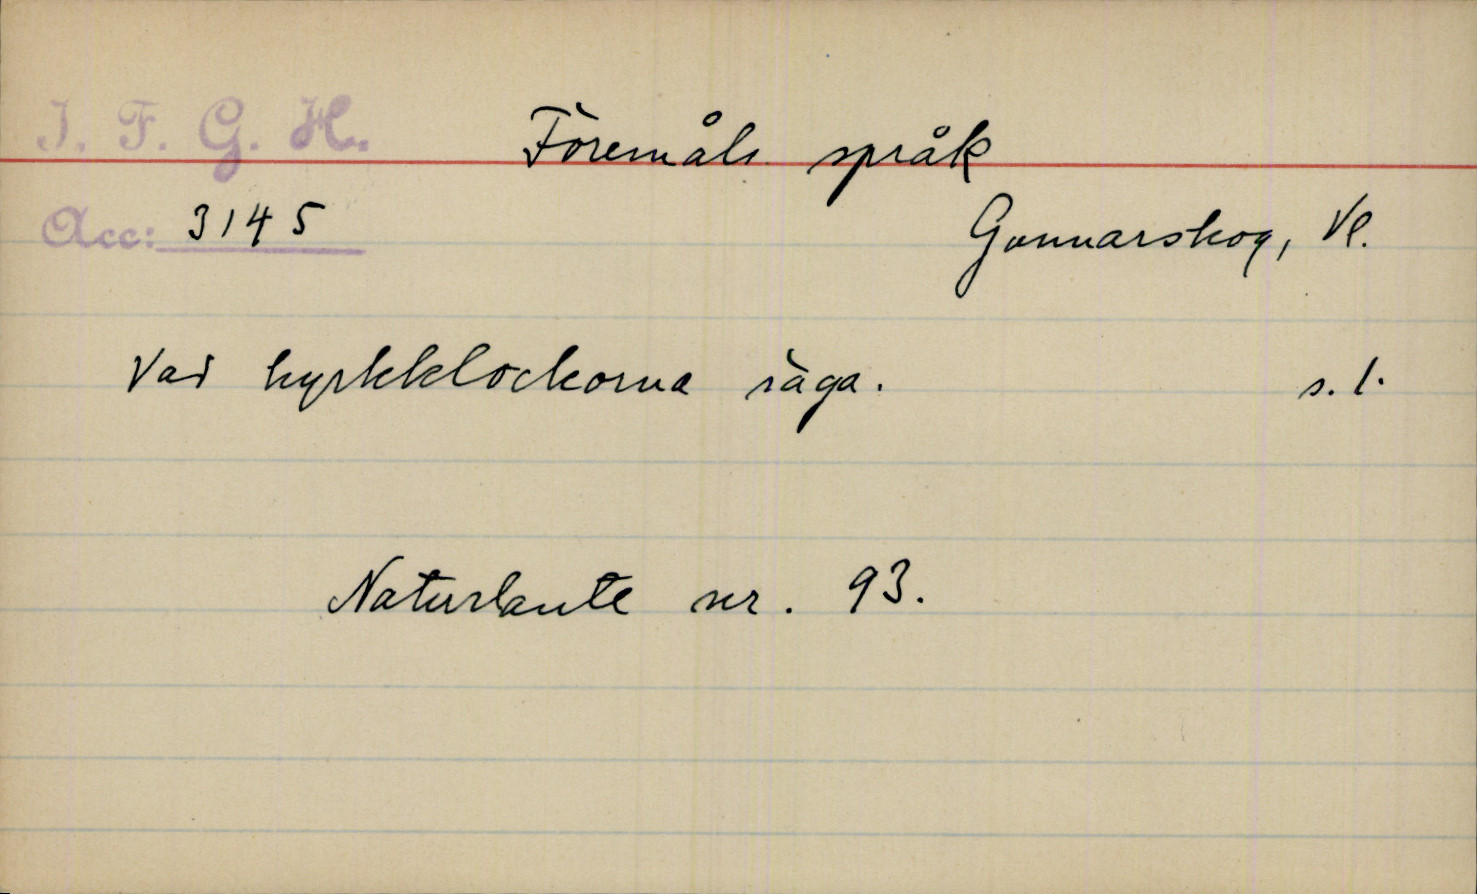 I. F. G. H.
Föremåls språk
Acc: 3145
Gunnarskog, Vl.
Vad kyrkklockorna säga. s. 1.
Naturlaute nr. 93.